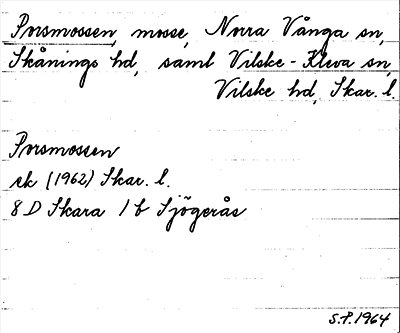 Porsmossen, mosse, Norra Vånga sn,
Skånings hd, saml Vilske-Kleva sn,
Vilske hd, Skar. l.
Porsmossen
ek (1962) Skar. l.
8 D Skara 1 b Sjögerås
S.P. 1964